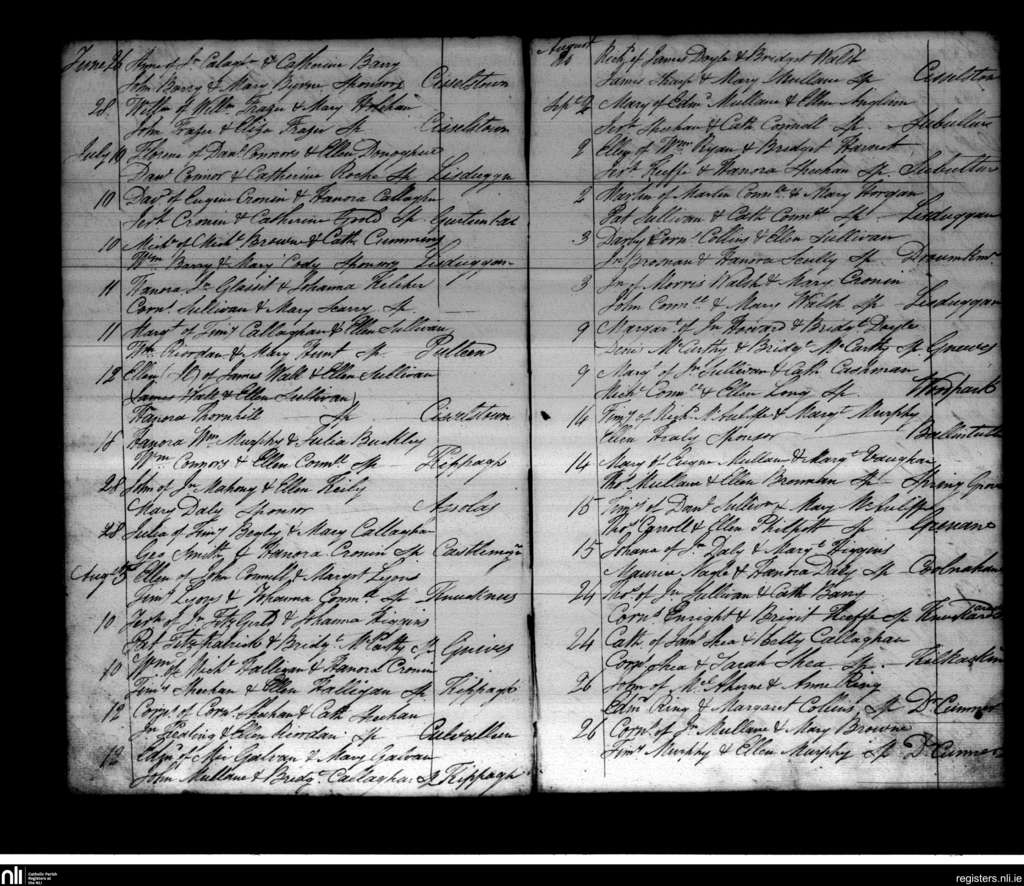 June 26 Hyne of Jn Calagn & Catherine Barry
John Barry & Mary Byrne Sponsors Cisselstown
28 Willm of Willm Frazer & Mary
John Frazer & Eliza Frazer Sp Cisselstown
July 10 Florence of Danl Connors & Ellen Donoghue
Danl Connor & Catherine Roche Sp Lisduggn
10 Davd of Eugene Cronin & Hanora Callaghn
Jerh Cronin & Catherine Sp
10 Michl of Michl Browne & Cath Cummins
Wm Barry & Mary Cody Sponsors Lisduggan
11 Hanora Jn & Johanna Keleher
Corns Sullivan & Mary Sp
11 Margt of Timy Callaghan & Ellen Sullivan
Wm Riordan & Mary Hunt Sp Pulleen
12 Ellen of James Wall & Ellen Sullivan
James Wall & Ellen Sullivan
Hanora Thornhill Sp Cisselstown
16 Hanora Wm Murphy & Julia Buckley
Wm Connors & Ellen Connll Sp Kippagh
28 John of Jn Mahony & Ellen Keily
Mary Daly Sponsor Assolas
28 Julia of Timy Begly & Mary Callaghn
Geo Smith & Hanora Cronin Sp Castlemgr
Augt 5 Ellen of John Connell & Margrt Lyons
Jams Lyons & Johanna Connll Sp
10 Jerh of Jn FitzGerld & Johanna Higgins
Pat Fitzpatrick & Bridgt McCarthy Sp Gneeves
10 Wm of Michl Halligan & Hanora Cronin
Timy Sheehan & Ellen Halligan Sp Kippagh
12 Corns of Corns Sheehan & Cath Sheehan
Jn & Ellen Riordan Sp
12 Edmd of Galvan & Mary Galvan
John Mullane & Bridgt Callaghan Sp Kippagh
August
30 Richd of James Doyle & Bridget Walsh
James Sharp & Mary Mullane Sp Cisselstown
Sept 2 Mary of Edmd Mullane & Ellen Anglim
Jerh Sheehan & Cath Connell Sp Subulter
2 Elley of Wm Ryan & Bridget Harnet
Jerh Keeffe & Hanora Sheehan Sp Subulter
2 Martin of Martin Connll & Mary Horgan
Pat Sullivan & Cath Connll Sp Lisduggan
3 Darby Corns Collins & Ellen Sullivan
Jn Brosnan & Hanora Scully Sp
3 Jn of Morris Walsh & Mary Cronin
John Connll & Mary Walsh Sp Lisduggan
9 Margart of Jn Howard & Bridgt Doyle
Denis McCarthy & Bridgt McCarthy Sp Gneeves
9 Margt of Jn Sullivan & Cath Cashman
Michl Connll & Ellen Long Sp Woodpark
14 Timy of Richd McAuliffe & Margt Murphy
Ellen Healy Sponsor
14 Mary of Eugne Mullane & Margt Vaughan
Thos Mullane & Ellen Brosnan Sp Spring Grove
15 Timy of Danl Sullivan & Mary McAuliffe
Thos Carroll & Ellen Philpott Sp Grenane
15 Johana of Jn Daly & Margt Higgins
Maurice Nagle & Hanora Daly Sp Coolnahane
24 Thos of Jn Sullivan & Cath Barry
Corns Enright & Brigit Keeffe Sp
24 Cath of Jams Shea & Nelly Callaghan
Corns Shea & Sarah Shea Sp
26 John of Ml Aherne & Anne Ring
Edmd Ring & Margaret Collins Sp
26 Corns of Jn Mullane & Mary Browne
Jams Murphy & Ellen Murphy Sp
nli
Catholic Parish
Registers at
the NLI
registers.nli.ie